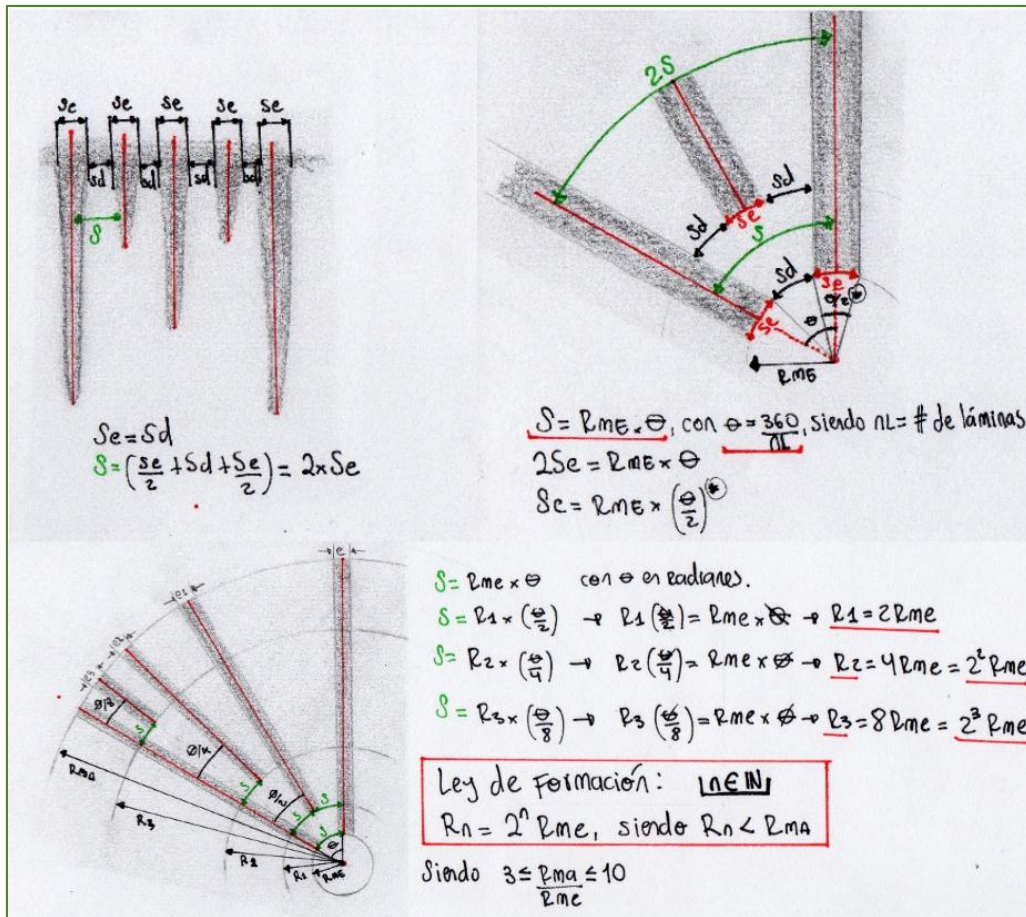 Se Se Se Se Se
Sd Sd Sd Sd
S
Se = Sd
S = (Se/2 + Sd + Se/2) = 2 x Se
2S
Sd
Se
Sd
S
Sd
Se
θ/2 *
θ
Se
RME
S = RME x θ, con θ = 360/nL, siendo nL = # de láminas
2Se = RME x θ
Se = RME x (θ/2) *
e
e1
e2
e3
Ø/8
S
Ø/4
S
Ø/2
S
S
S
θ
RMA
R3
R2
R1
RME
S = Rme x θ con θ en Radianes.
S = R1 x (θ/2) → R1 (θ/2) = Rme x θ → R1 = 2Rme
S = R2 x (θ/4) → R2 (θ/4) = Rme x θ → R2 = 4Rme = 2² Rme
S = R3 x (θ/8) → R3 (θ/8) = Rme x θ → R3 = 8Rme = 2³ Rme
Ley de Formación: n∈IN
Rn = 2ⁿ Rme, siendo Rn < RMA
Siendo 3 ≤ Rma/Rme ≤ 10